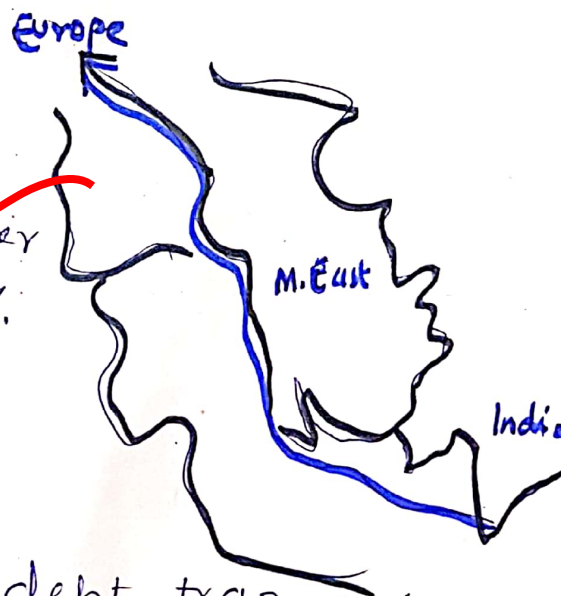 Europe
er
M. East
Indi
debt trap